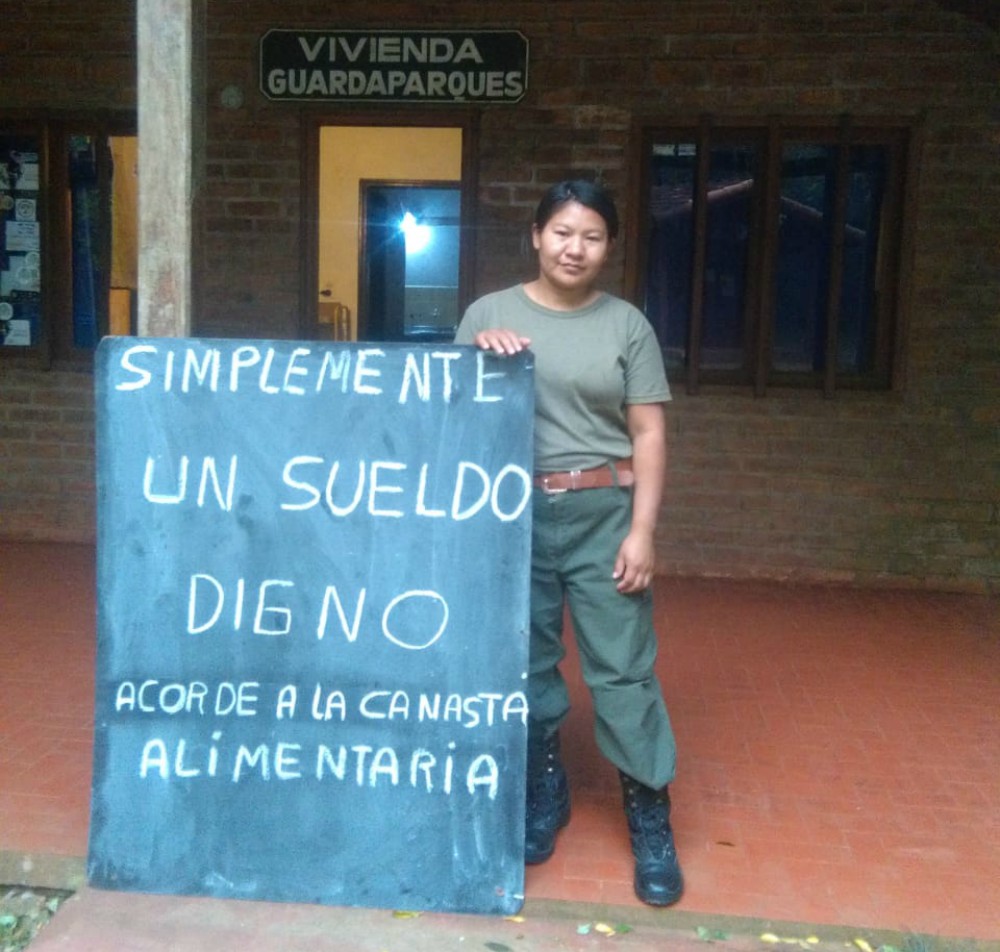 VIVIENDA
GUARDAPARQUES
SIMPLEMENTE
UN SUELDO
DIGNO
ACORDE A LA CANASTA
ALIMENTARIA